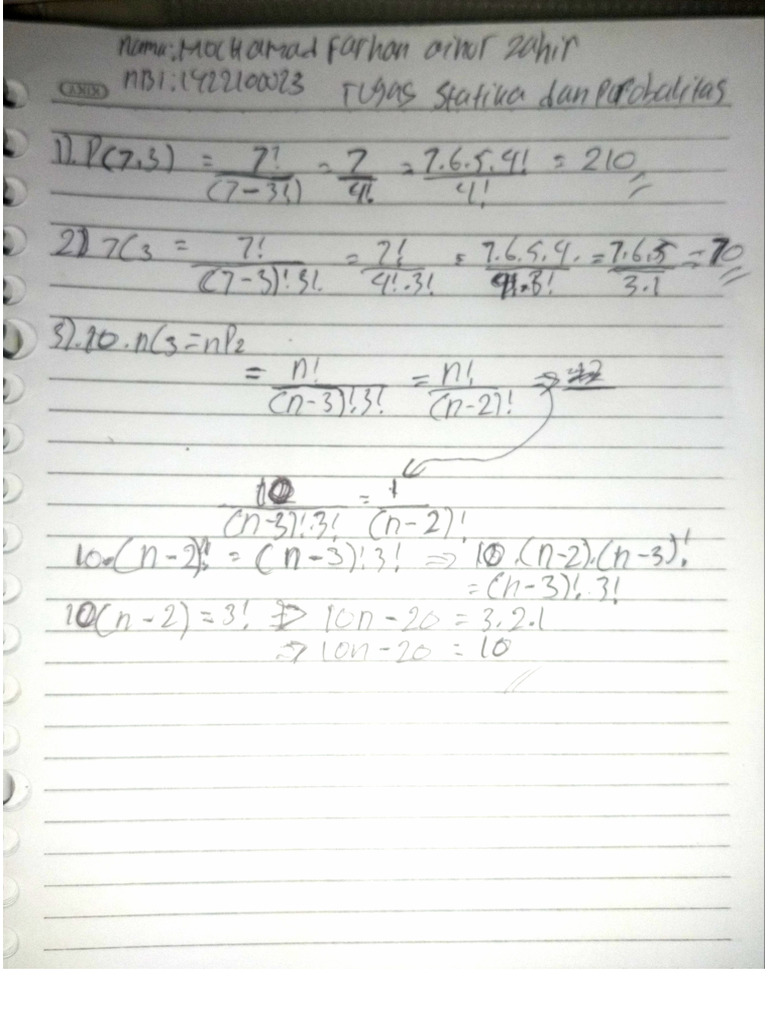 Nama: Mochamad Farhan ainur zahir
NBI: 1422100023 Tugas Statika dan Perobalitas
KIKY
1). P(7,3) = 7!/(7-3!) = 7/4! = 7.6.5.4!/4! = 210
2) 7C3 = 7!/(7-3)!3! = 7!/4!.3! = 7.6.5.4./4!.3! = 7.6.5/3.1 = 70
3). 10.nC3 = nP2
= n!/(n-3)!3! = n!/(n-2)! ⇒
10/(n-3)!.3! = 1/(n-2)!
10.(n-2)! = (n-3)!3! ⇒ 10.(n-2).(n-3)!
= (n-3)!.3!
10(n-2) = 3! ⇒ 10n-20 = 3.2.1
⇒ 10n-20 = 10